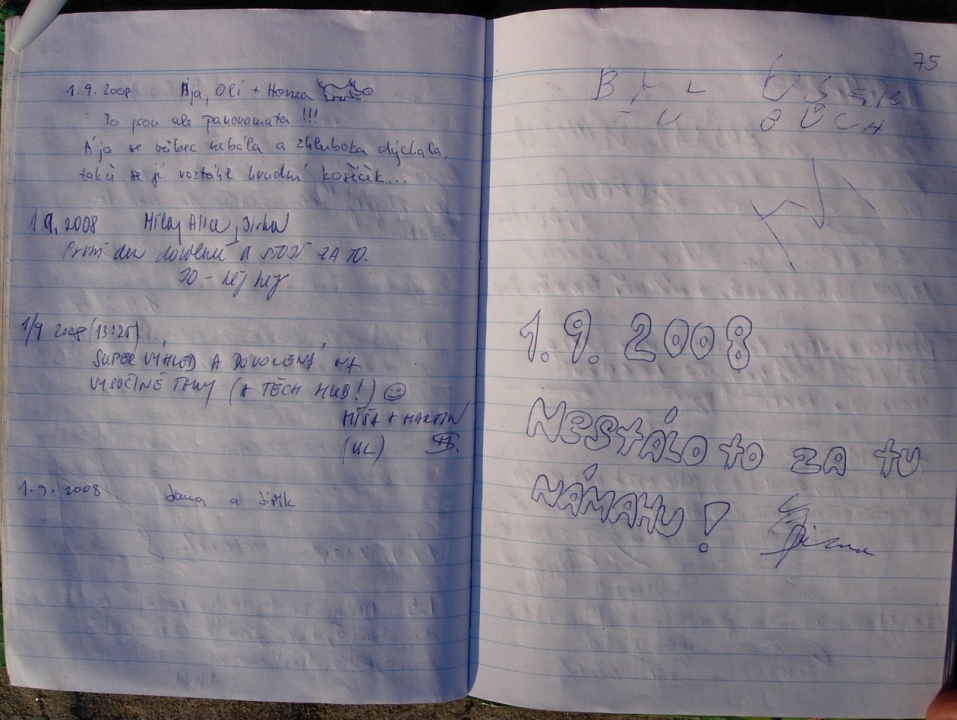 1.9.2008 Ája, Oli + Honza
To jsou ale panoramata !!!
Ája se vůbec nebála a zhluboka dýchala,
takže se jí roztáhl hrudní košíček...
1.9.2008 Míla, Alice, Jirka
První den dovolené a STOJÍ ZA TO.
JO - hej hej
1/9 2008 (13:25)
SUPER VÝHLED A DOVOLENÁ NA
VYSOČINĚ TADY (A TĚCH HUB!)
MÍŠA + MARTIN
(UL)
1.9.2008 Jana a Jiřík
75
1.9. 2008
NESTÁLO to ZA tU
NÁMAHU!